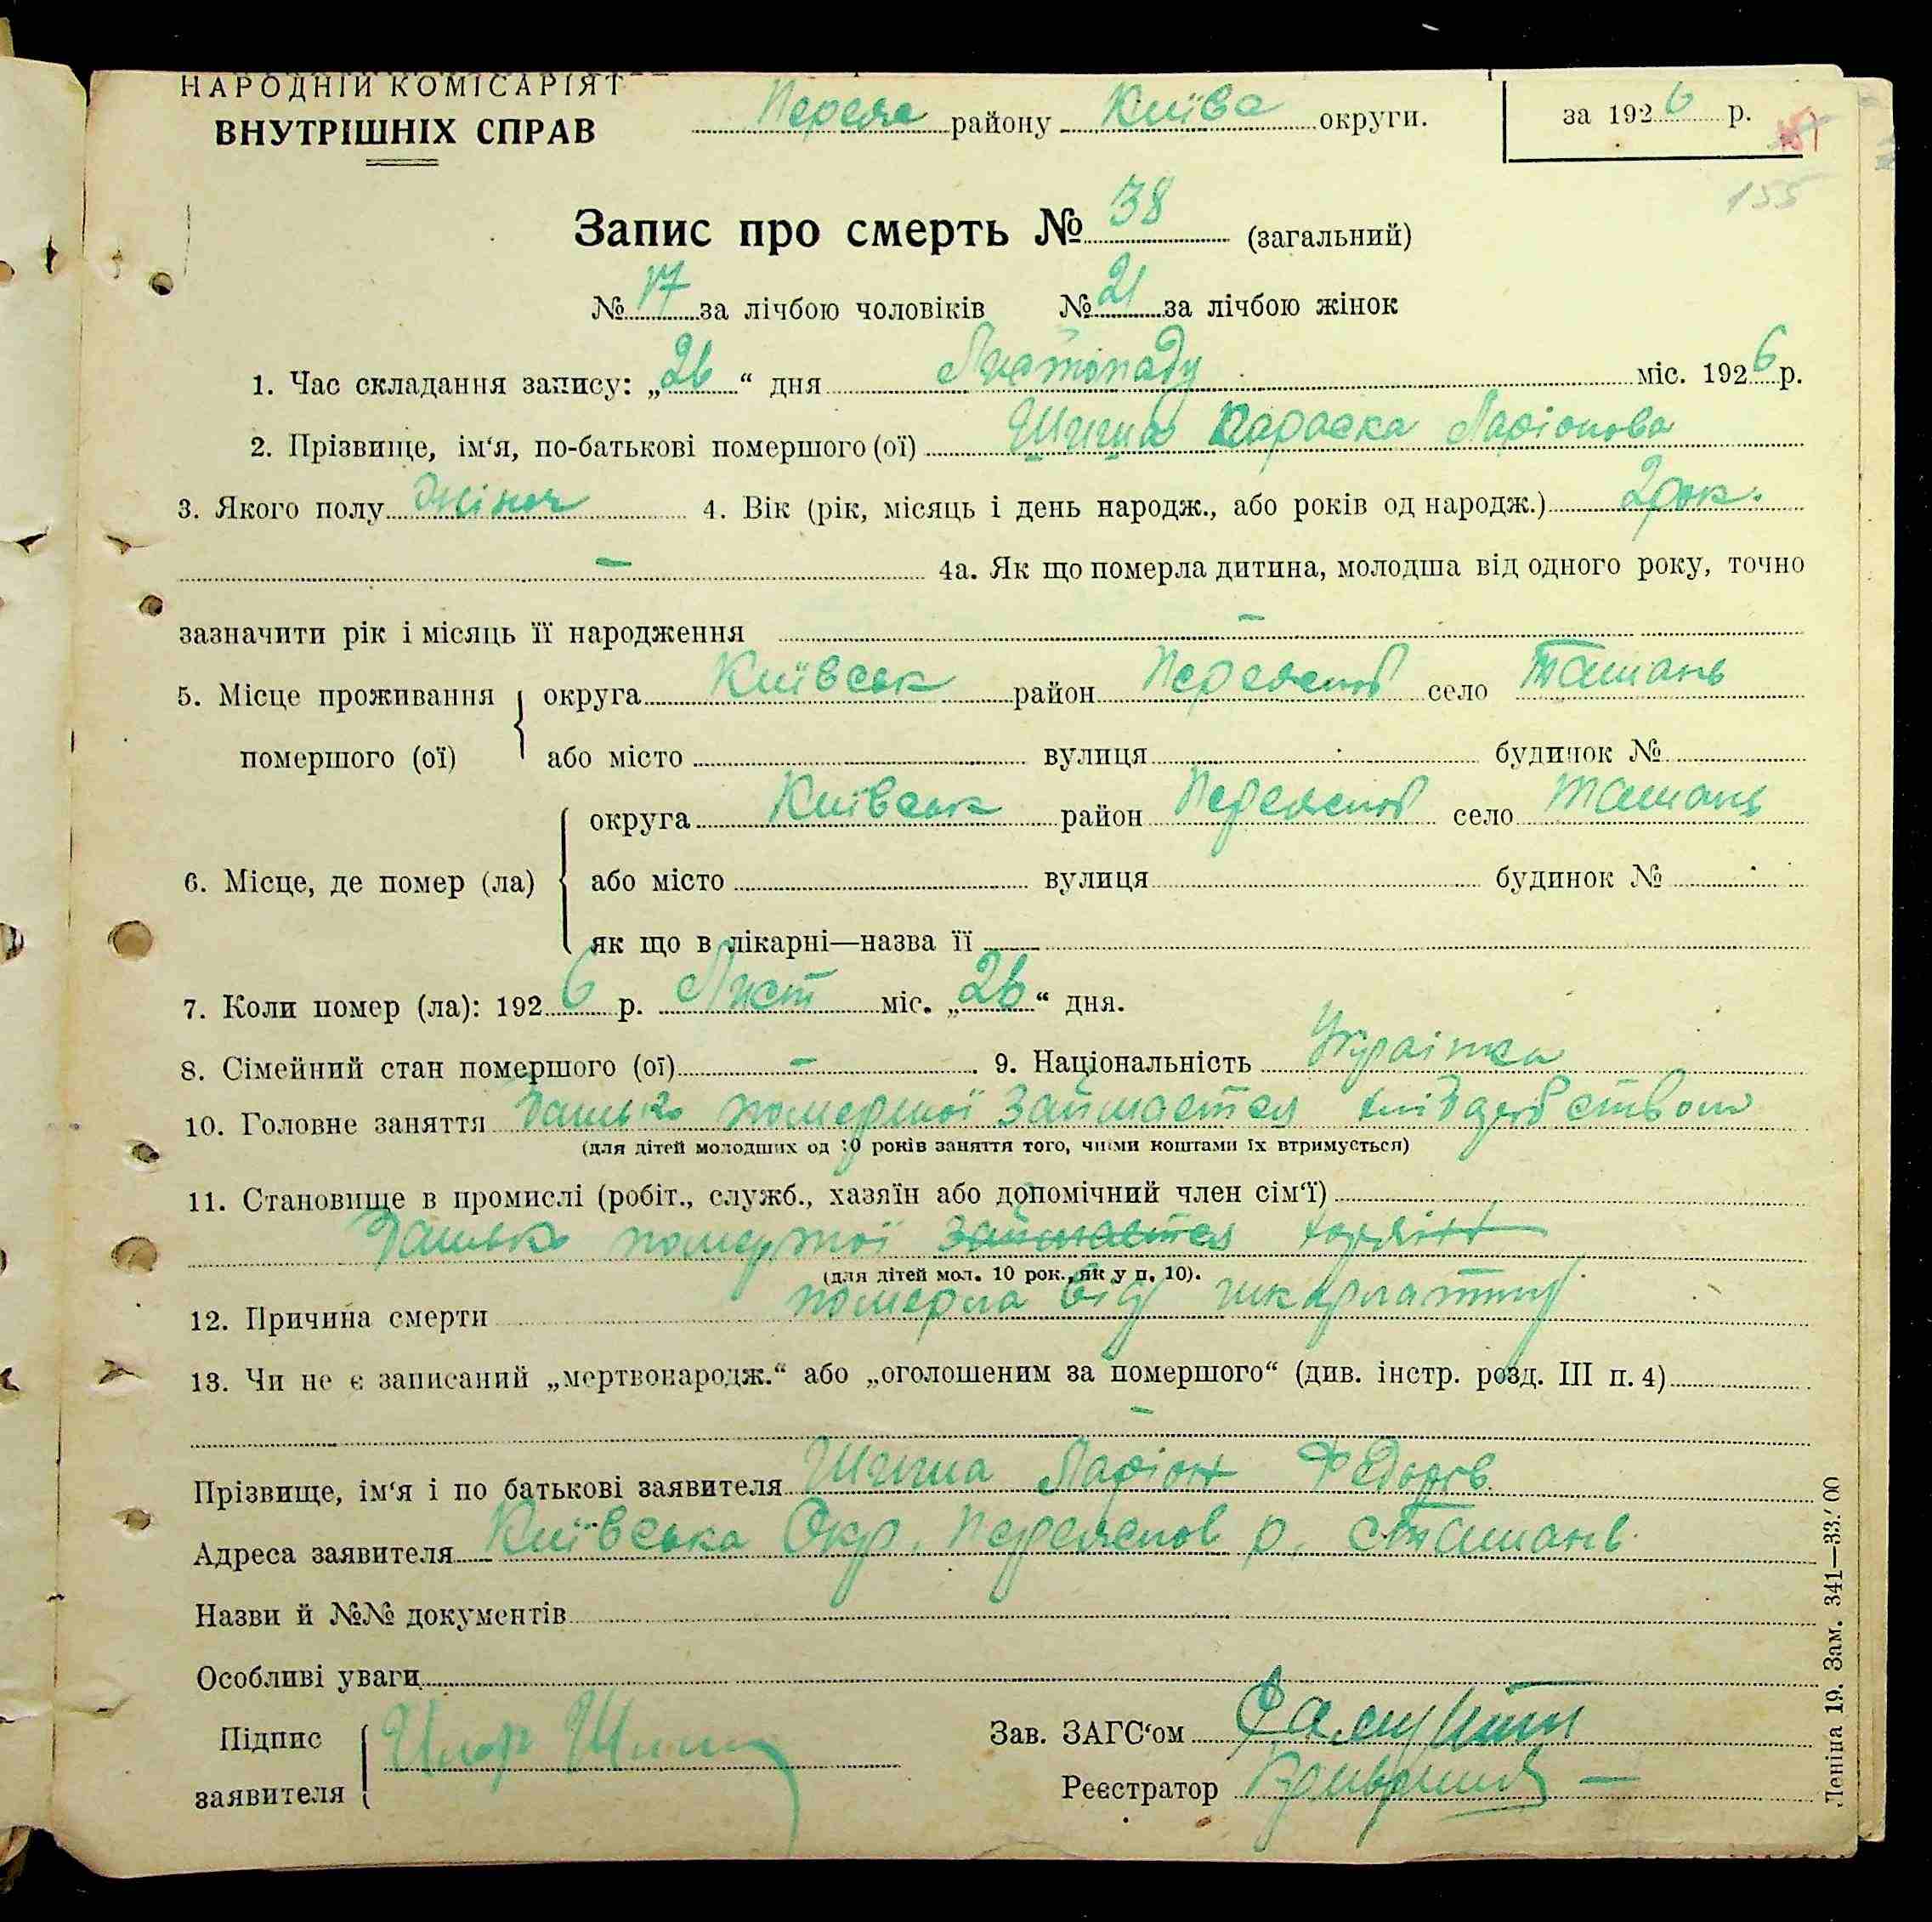 НАРОДНІЙ КОМІСАРІЯТ
ВНУТРІШНІХ СПРАВ
Переяс району Київс округи.
за 1926 р.
155
Запис про смерть № 38 (загальний)
№ 17 за лічбою чоловіків № 21 за лічбою жінок
1. Час складання запису: „26“ дня Листопаду міс. 1926 р.
2. Прізвище, ім‘я, по-батькові помершого (ої) Параска Ларіонова
3. Якого полу жіноч 4. Вік (рік, місяць і день народж., або років од народж.) 2 рок.
— 4а. Як що померла дитина, молодша від одного року, точно
зазначити рік і місяць її народження —
5. Місце проживання округа Київськ район Переяслов село Ташань
помершого (ої) або місто вулиця будинок №
округа Київськ район Переяслов село Ташань
6. Місце, де помер (ла) або місто вулиця будинок №
як що в лікарні—назва її
7. Коли помер (ла): 1926 р. Лист міс. „26“ дня.
8. Сімейний стан помершого (ої) — 9. Національність Українка
10. Головне заняття Батько помершої займается хліборобством
(для дітей молодших од 10 років заняття того, чиїми коштами їх втримується)
11. Становище в промислі (робіт., служб., хазяїн або допомічний член сім‘ї)
Батько помершої займается хазяїн
(для дітей мол. 10 рок., як у п. 10).
12. Причина смерти померла від шкарлатини
13. Чи не є записаний „мертвонародж.“ або „оголошеним за помершого“ (див. інстр. розд. III п. 4)
—
Прізвище, ім‘я і по батькові заявителя Ларіон Федоров
Адреса заявителя Київська Окр. Переяслов р. с Ташань
Назви й №№ документів
Особливі уваги
Підпис
заявителя
Зав. ЗАГС‘ом
Реєстратор
Леніна 19. Зам. 341—33.